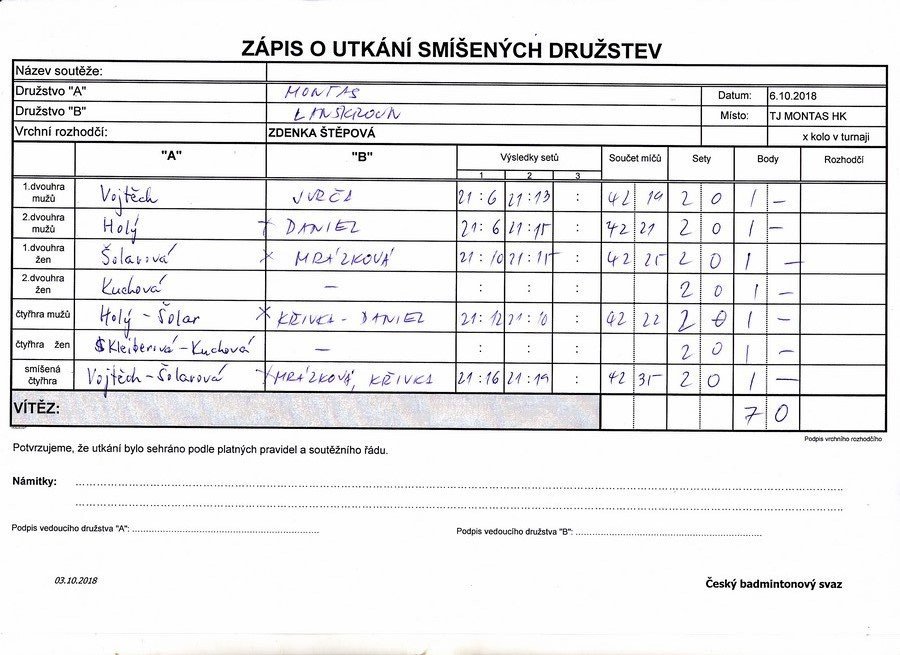 ZÁPIS O UTKÁNÍ SMÍŠENÝCH DRUŽSTEV
Název soutěže:
Družstvo "A" MONTAS Datum: 6.10.2018
Družstvo "B" LANŠKROUN Místo: TJ MONTAS HK
Vrchní rozhodčí: ZDENKA ŠTĚPOVÁ x kolo v turnaji
"A" "B" Výsledky setů Součet míčů Sety Body Rozhodčí
1 2 3
1.dvouhra mužů Vojtěch JURČA 21:6 21:13 : 42 19 2 0 1 –
2.dvouhra mužů Holý × DANIEL 21:6 21:15 : 42 21 2 0 1 –
1.dvouhra žen Šolarová × MRÁZKOVÁ 21:10 21:15 : 42 25 2 0 1 –
2.dvouhra žen Kuchová – : : : 2 0 1 –
čtyřhra mužů Holý - Šolar × KŘIVKA - DANIEL 21:12 21:10 : 42 22 2 0 1 –
čtyřhra žen Kleiberová-Kuchová – : : : 2 0 1 –
smíšená čtyřhra Vojtěch-Šolarová × MRÁZKOVÁ, KŘIVKA 21:16 21:19 : 42 35 2 0 1 –
VÍTĚZ: 7 0
Podpis vrchního rozhodčího
Potvrzujeme, že utkání bylo sehráno podle platných pravidel a soutěžního řádu.
Námitky:
Podpis vedoucího družstva "A": Podpis vedoucího družstva "B":
03.10.2018 Český badmintonový svaz